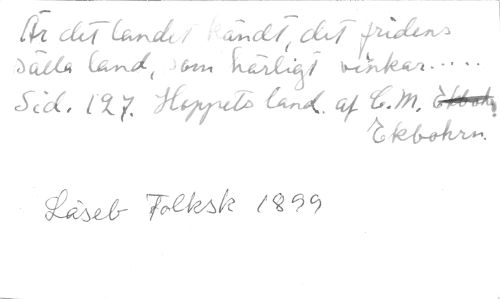 Är det landet kändt, det fridens
sälla land, som härligt vinkar.....
Sid. 127. Hoppets land. af C. M. Ekbohrn
Ekbohrn.
Läseb Folksk 1899